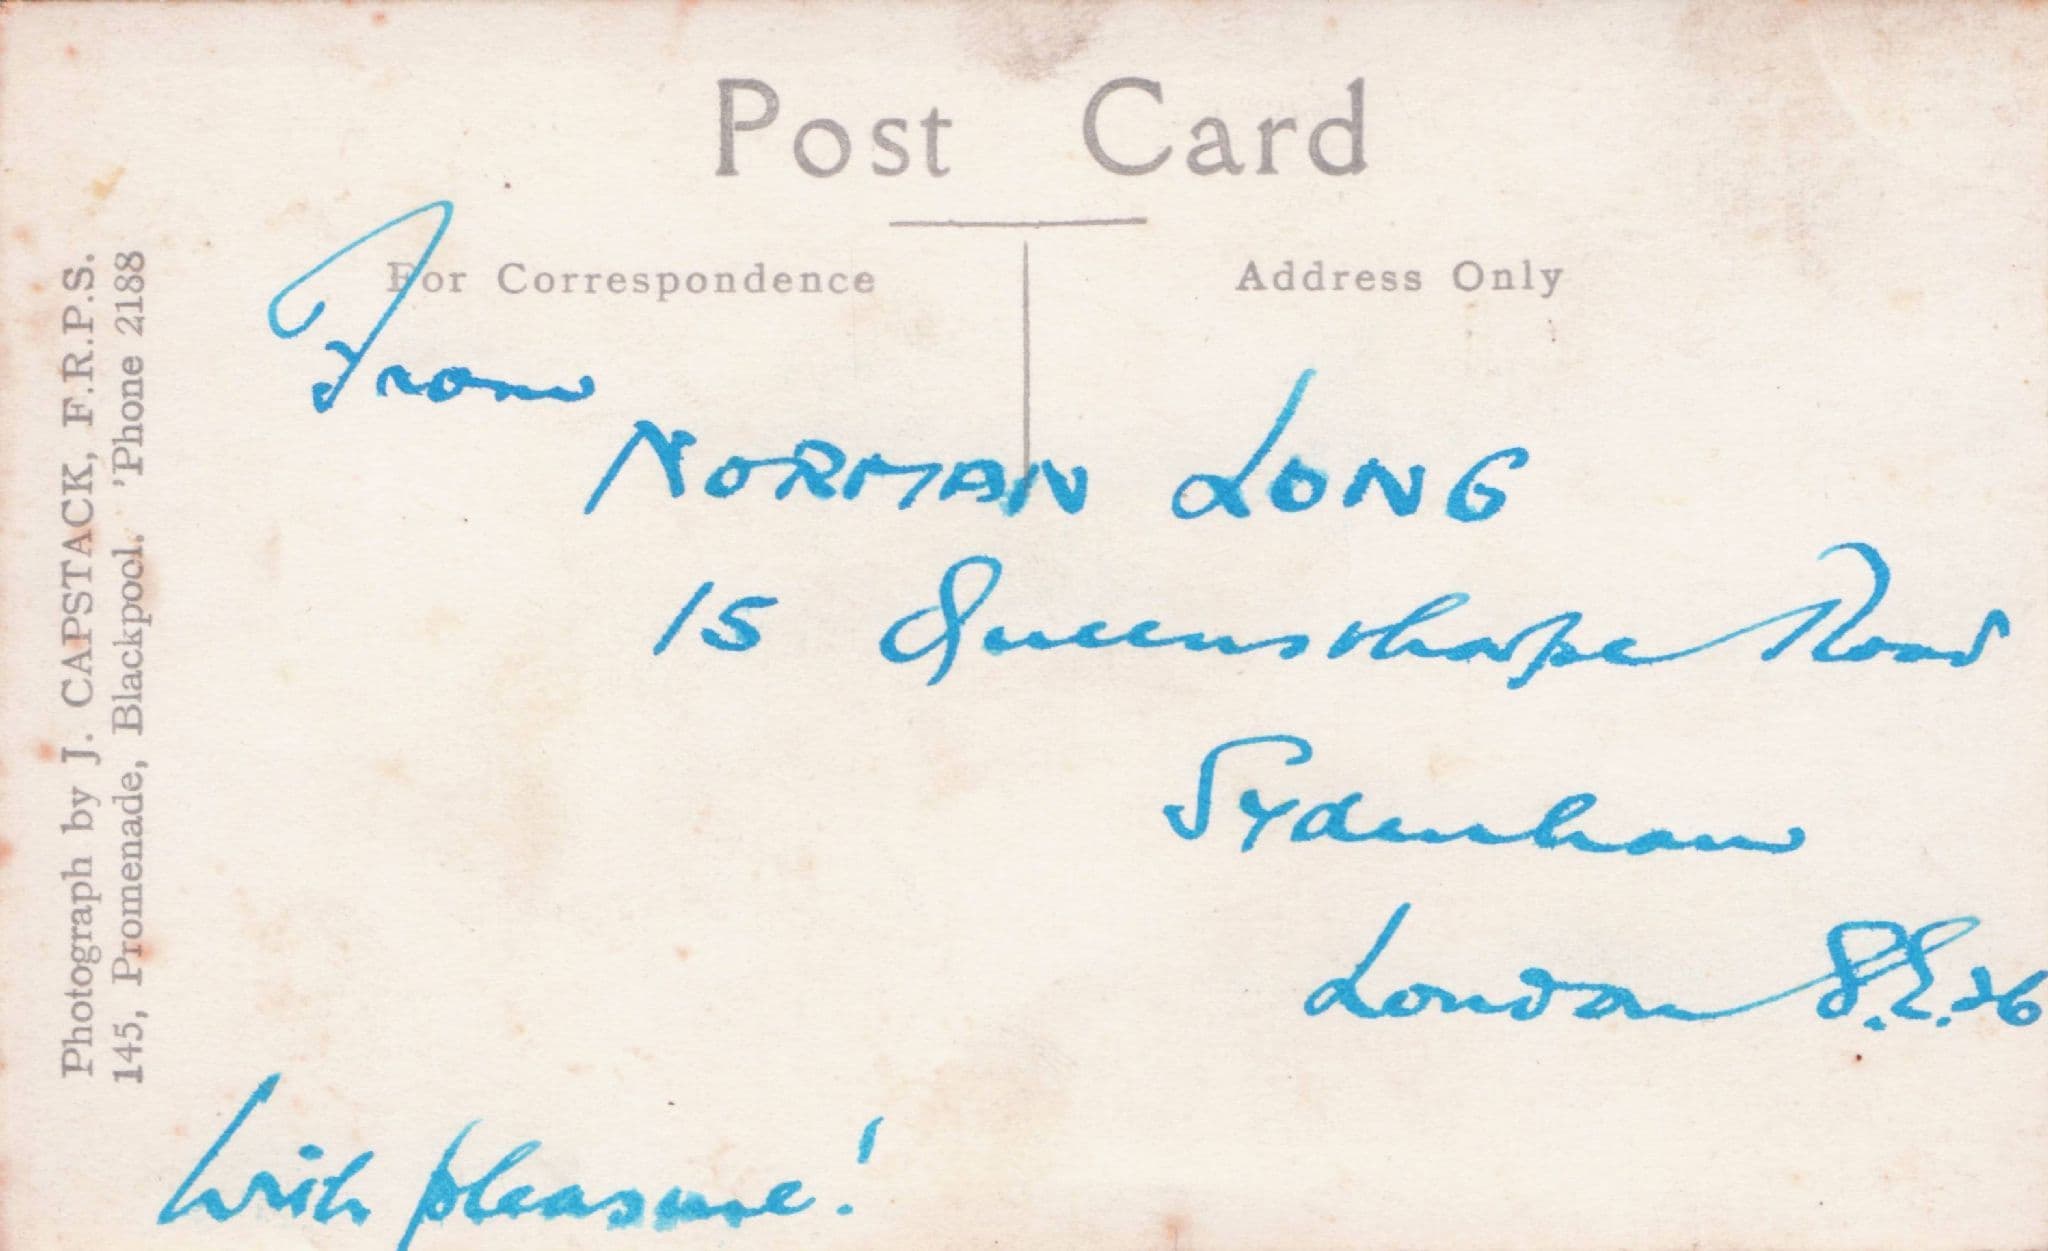 Post Card
For Correspondence
Address Only
Photograph by J. CAPSTACK, F.R.P.S.
145, Promenade, Blackpool. 'Phone 2188
From
NORMAN LONG
15 Queensthorpe Road
Sydenham
London S.E.26
With pleasure!